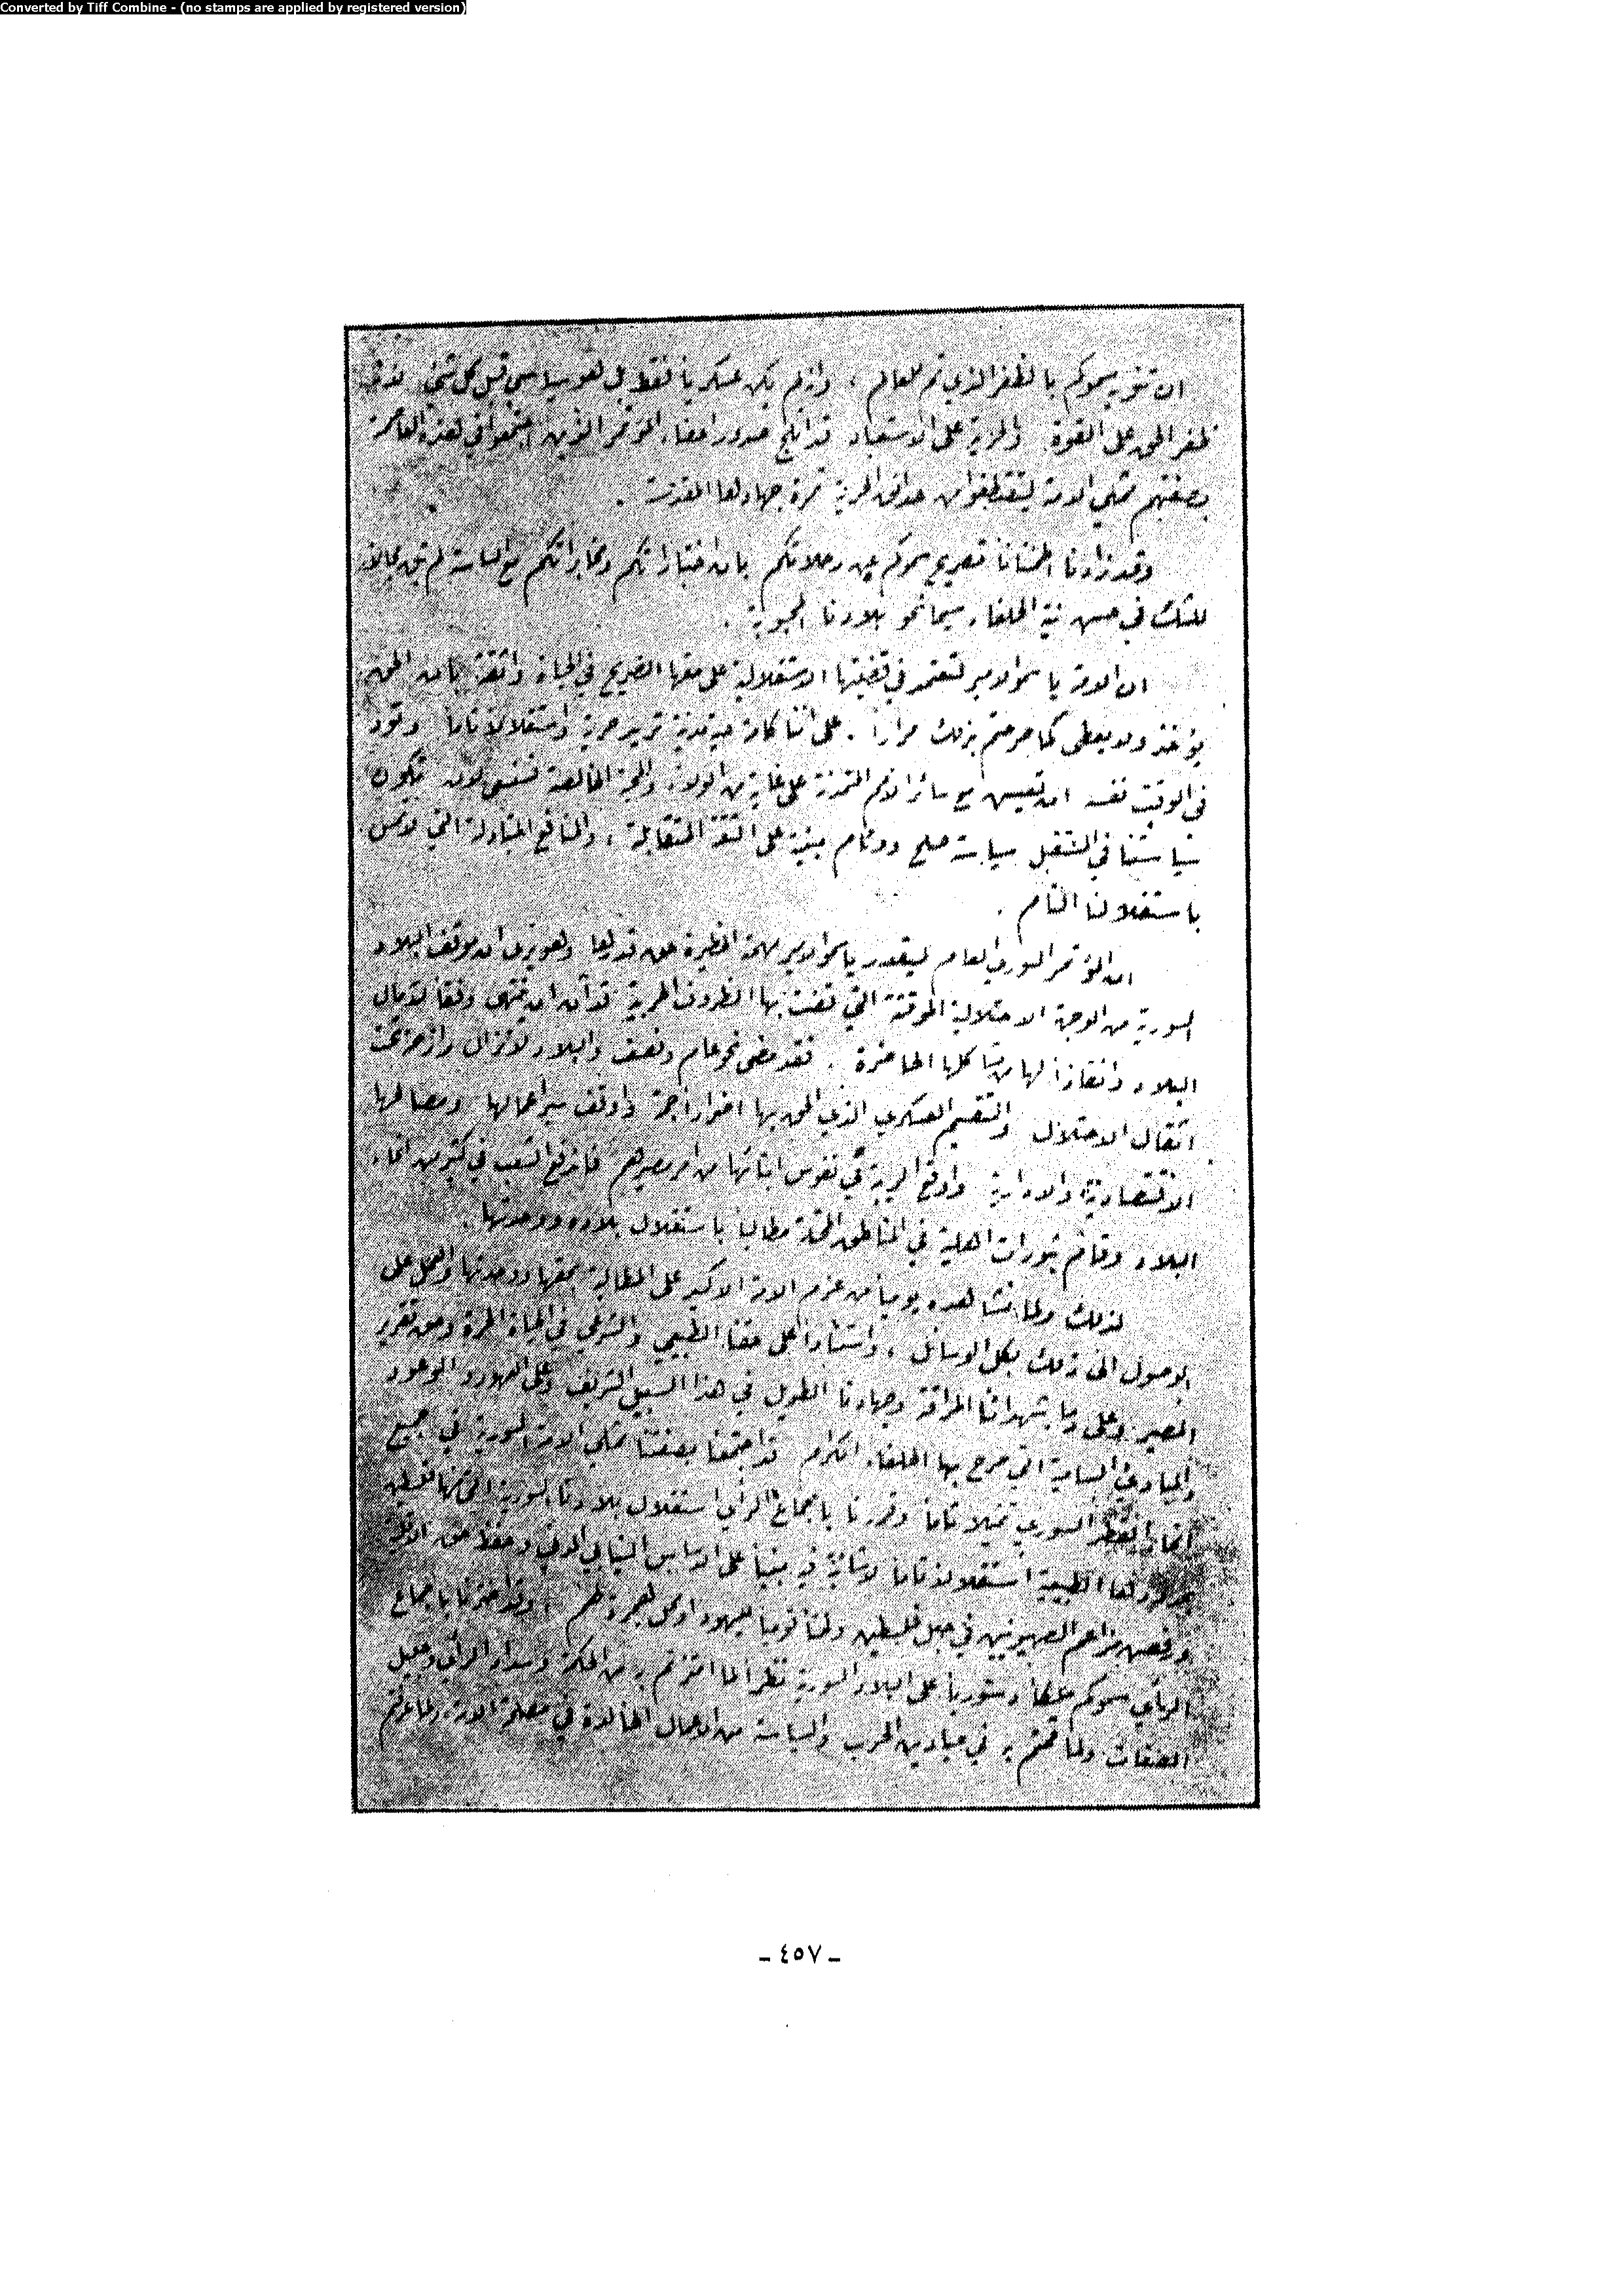 Converted by Tiff Combine - (no stamps are applied by registered version)
ان تنويه سموكم بالظفر الذي تم للعالم ، وان لم يكن عسكرياً فقط بل هو سياسي قبل كل شيء
ظفر الحق على القوة والحرية على الاستعباد قد اثلج صدور اعضاء المؤتمر الذين اجتمعوا في هذه العاصمة
بصفتهم ممثلي الامة ليقتطفوا من حدائق الحرية ثمرة جهادها المقدسة .
وقد زادنا اطمئناناً تصريح سموكم عن رحلاتكم بان اختباراتكم ومخابراتكم مع الساسة لم تبق مجالاً
للشك في حسن نية الحلفاء سيما نحو بلادنا المحبوبة .
ان الامة يا سمو الامير لتعتمد في قضيتها الاستقلالية على حقها الصريح في الحياة واثقة بان الحق
يؤخذ ولا يعطى كما صرحتم بذلك مراراً . على اننا كأمة مدنية تريد حرية واستقلالاً تاماً وتود
في الوقت نفسه ان تعيش مع سائر الامم المتمدنة على غاية من الولاء والمحبة الخالصة فنسعى لان تكون
سياستنا في المستقبل سياسة صلح ووئام مبنية على الثقة المتقابلة ، والمنافع المتبادلة التي لا تمس
باستقلالنا التام .
ان المؤتمر السوري العام ليقدر يا سمو الامير مهمته الخطيرة حق قدرها وهو يرى ان موقف البلاد
السورية من الوجهة الاحتلالية الموقتة التي قضت بها الظروف الحربية قد آن ان تنتهي وفقاً لآمال
البلاد وانقاذاً لها من مشاكلها الحاضرة . فقد مضى نحو عام ونصف والبلاد لا تزال رازحة تحت
اثقال الاحتلال والتقسيم العسكري الذي الحق بها اضراراً جمة واوقف سير اعمالها ومصالحها
الاقتصادية والادارية واوقع الريبة في نفوس ابنائها من امر مصيرهم فاندفع الشعب في كثير من انحاء
البلاد وقام بثورات اهلية في المناطق المحتلة مطالباً باستقلال بلاده ووحدتها .
لذلك ولما نشاهده يومياً من عزم الامة الاكيد على المطالبة بحقها ووحدتها والعمل على
الوصول الى ذلك بكل الوسائل ، واستناداً على حقنا الطبيعي والشرعي في الحياة الحرة وحق تقرير
المصير وعلى دماء شهدائنا المراقة وجهادنا الطويل في هذا السبيل الشريف وعلى العهود والوعود
والمبادئ السامية التي صرح بها الحلفاء الكرام قد اجتمعنا بصفتنا ممثلي الامة السورية في جميع
انحاء القطر السوري تمثيلاً تاماً وقررنا باجماع الرأي استقلال بلادنا السورية التي منها فلسطين
بحدودها الطبيعية استقلالاً تاماً لا شائبة فيه مبنياً على الاساس النيابي المدني وحفظ حق الاقلية
ورفض مزاعم الصهيونيين في جعل فلسطين وطناً قومياً لليهود او محل هجرة لهم ، وقد اخترنا باجماع
الرأي سموكم ملكاً دستورياً على البلاد السورية نظراً لما امتزتم به من الحكمة وسداد الرأي وجليل
الصفات ولما قمتم به في ميادين الحرب والسياسة من الاعمال الخالدة في مصلحة الامة ولما عرفتم
- ٤٥٧ -